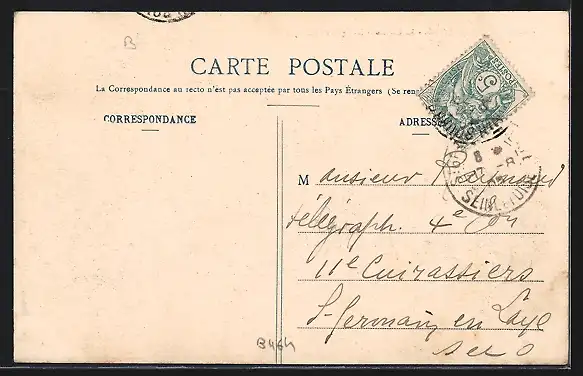 B
CARTE POSTALE
La Correspondance au recto n'est pas acceptée par tous les Pays Étrangers (Se
CORRESPONDANCE
ADRESSE
POSTES
5
Monsieur
télégraph. 4e
11e Cuirassiers
St-Germain en Laye
S et O
SEINE-ET-OISE
B464